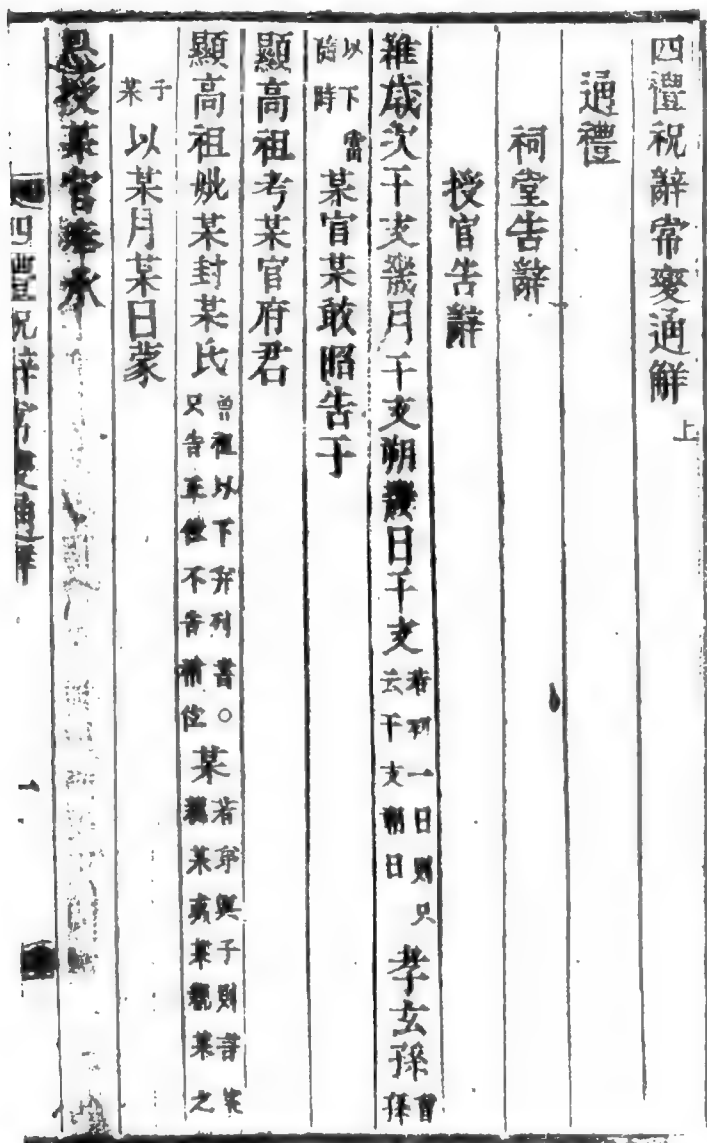 四禮祝辭常變通解 上
通禮
祠堂告辭
授官告辭
維歲次干支幾月干支朔幾日干支 若初一日則只云干支朔日 孝玄孫 曾孫
以下當隨時 某官某敢昭告于
顯高祖考某官府君
顯高祖妣某封某氏 曾祖以下幷列書○只告正位不告祔位 某 若弟與子則言某親某或某親某之
子某 以某月某日蒙
恩授某官奉承
四禮祝辭常變通解 一